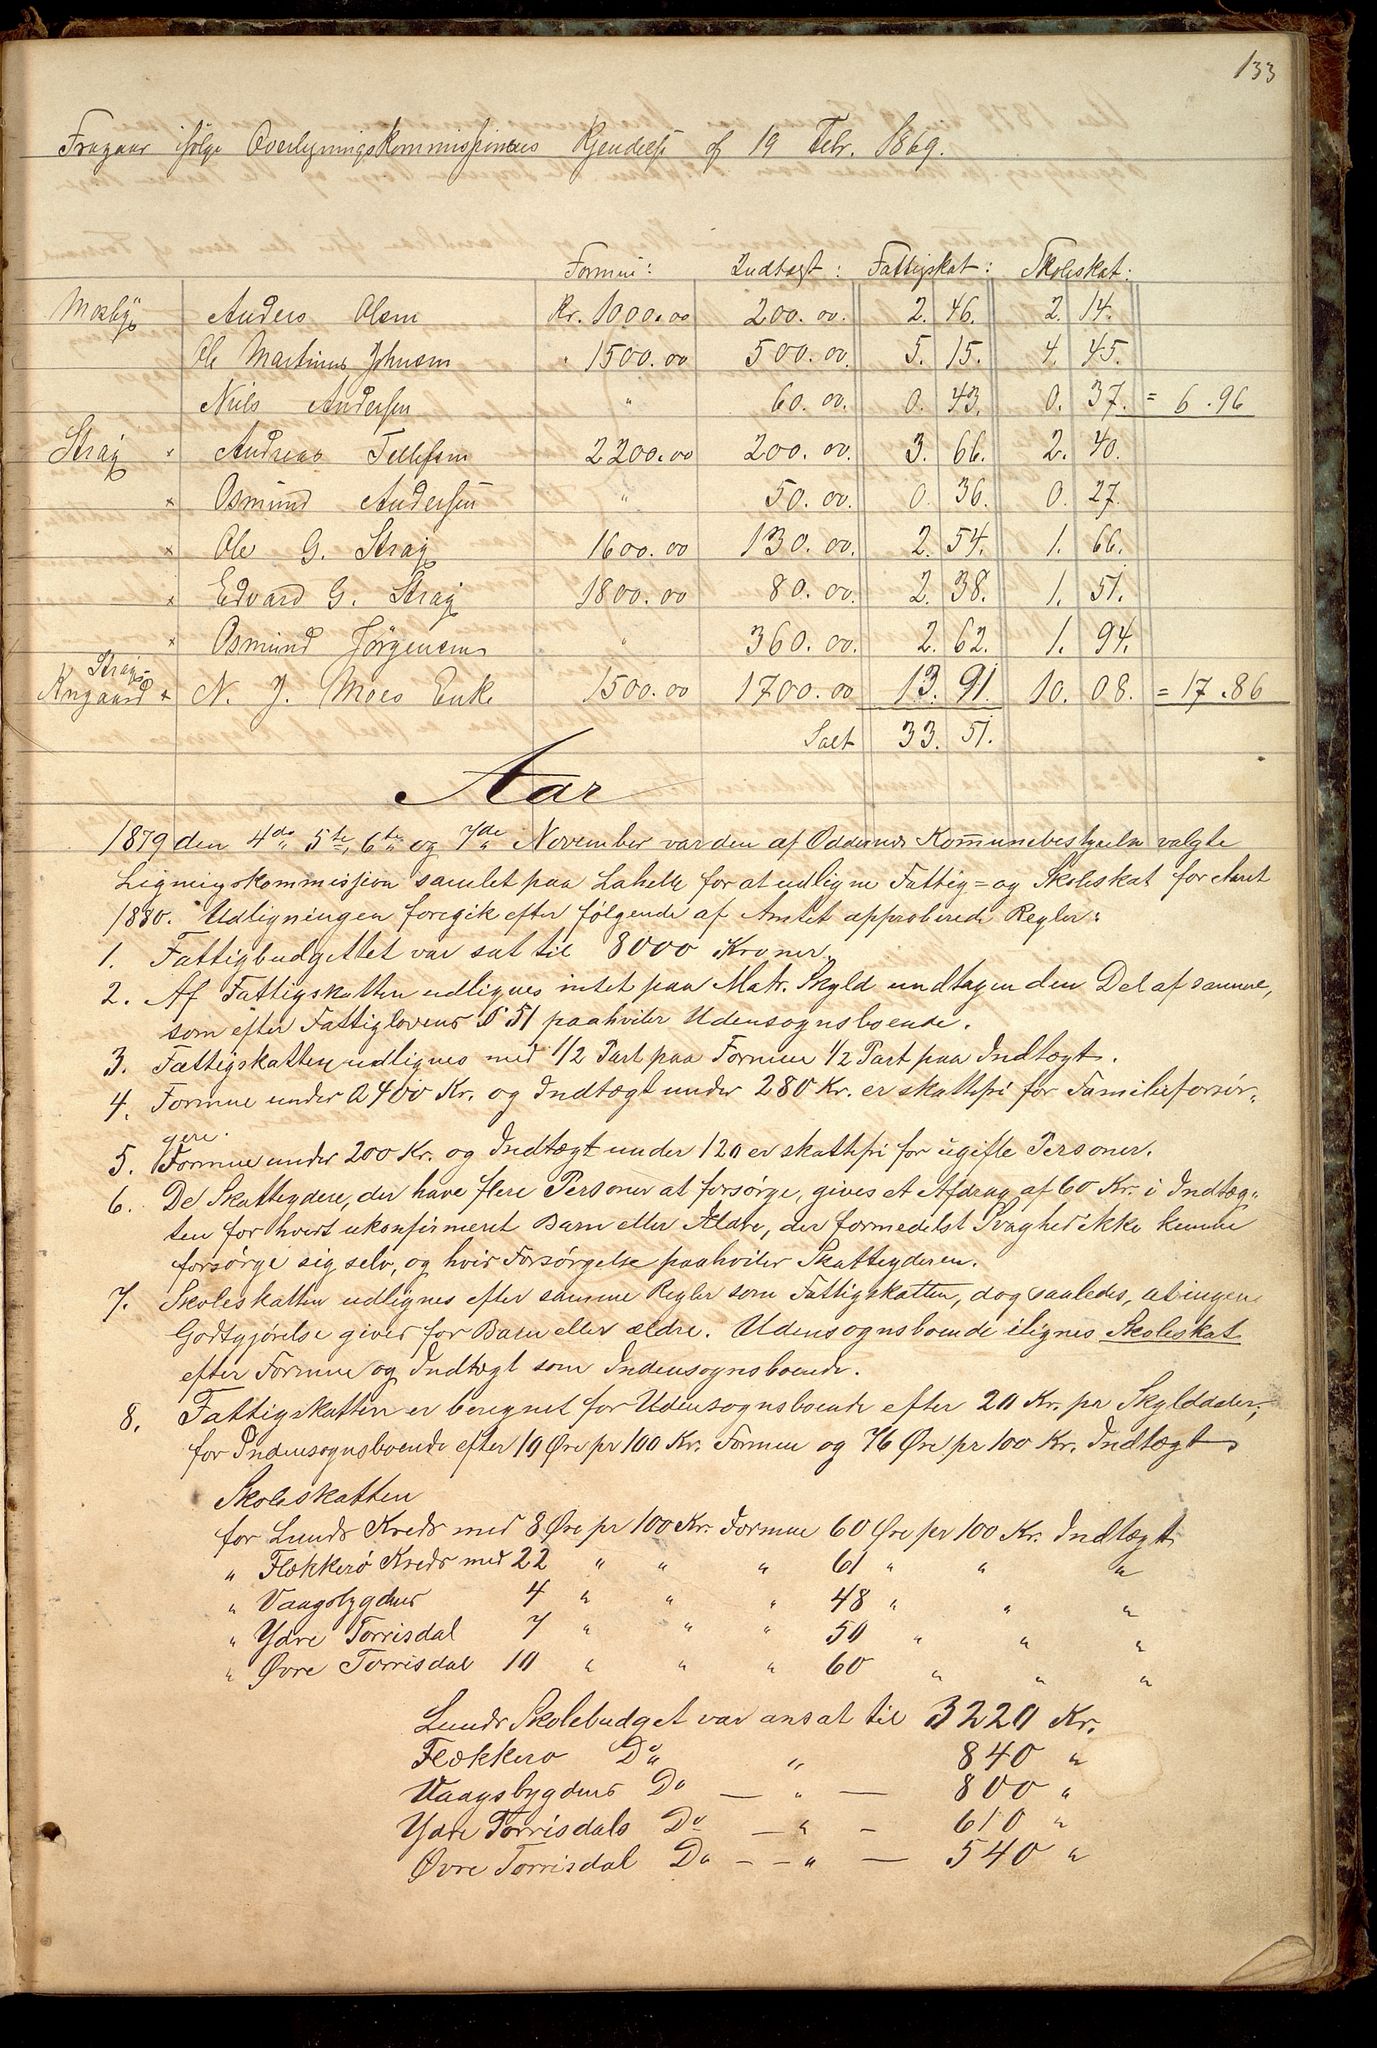 133
Fragaar ifølge Overligningskommissionens Kjendelse af 19 Febr. 1869.
Formue: Indtægt: Fattigskat: Skoleskat:
Mosby Anders Olsen Kr. 1000.00 200.00. 2. 46. 2. 14.
Ole Martinus Johnsen " 1500.00 500.00. 5. 15. 4. 45.
Niels Andersen " 60.00. 0. 43. 0. 37. = 6.96
Straj x Andreas Tellefsen 2200.00 200.00. 3. 66. 2. 40.
x Osmund Andersen " 50.00. 0. 36. 0. 27.
x Ole G. Straj 1600.00 130.00. 2. 54. 1. 66.
x Edvard G. Straj 1800.00 80.00. 2. 38. 1. 51.
x Osmund Jørgensen " 360.00. 2. 62. 1. 94.
Straj-
x N. J. Moes Enke 1500.00 1700.00 13. 91. 10. 08. = 17.86
Salt 33. 51.
Aar
1879 den 4de 5te, 6te og 7de November var den af Oddernes Kommunebestyrelse valgte
Ligningskommission samlet paa Lahelle for at udligne Fattig= og Skoleskat for Aaret
1880. Udligningen foregik efter følgende af Amtet approberede Regler:
1. Fattigbudgettet var sat til 8000 Kroner.
2. Af Fattigskatten udlignes intet paa Matr. Skyld undtagen den Del af samme,
som efter Fattiglovens § 51 paahviler Udensognsboende.
3. Fattigskatten udlignes med 1/2 Part paa Formue 1/2 Part paa Indtægt.
4. Formue under 400 Kr. og Indtægt under 280 Kr. er skattefri for Familieforsør-
gere.
5. Formue under 200 Kr. og Indtægt under 120 er skattefri for ugifte Personer.
6. De Skatteydere, der have flere Personer at forsørge, gives et Afdrag af 60 Kr. i Indtæg-
ten for hvert ukonfirmeret Barn eller Ældre, der formedelst Svaghed ikke kunne
forsørge sig selv, og hvis Forsørgelse paahviler Skatteyderen.
7. Skoleskatten udlignes efter samme Regler som Fattigskatten, dog saaledes, at ingen
Godtgjørelse gives for Barn eller ældre. Udensognsboende ilignes Skoleskat
efter Formue og Indtægt som Indensognsboende.
8. Fattigskatten er beregnet for Udensognsboende efter 20 Kr. pr Skylddaler,
for Indensognsboende efter 10 Øre pr 100 Kr. Formue og 76 Øre pr 100 Kr. Indtægt
Skoleskatten
for Lunds Kreds med 8 Øre pr 100 Kr. Formue 60 Øre pr 100 Kr. Indtægt
" Flekkerø Kreds med 22 " " " 61 " " "
" Vaagsbygdens 4 " " " 48 " " "
" Ydre Torrisdal 7 " " " 50 " " "
" Øvre Torrisdal 10 " " " 60 " " "
Lunds Skolebudget var ansat til 3220 Kr.
Flekkerø Do " 840 "
Vaagsbygdens Do — " — 800 "
Ydre Torrisdals Do — " — 610 "
Øvre Torrisdal Do — — " — 540 "